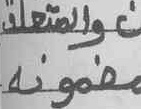 والمتعلق
مضمونه